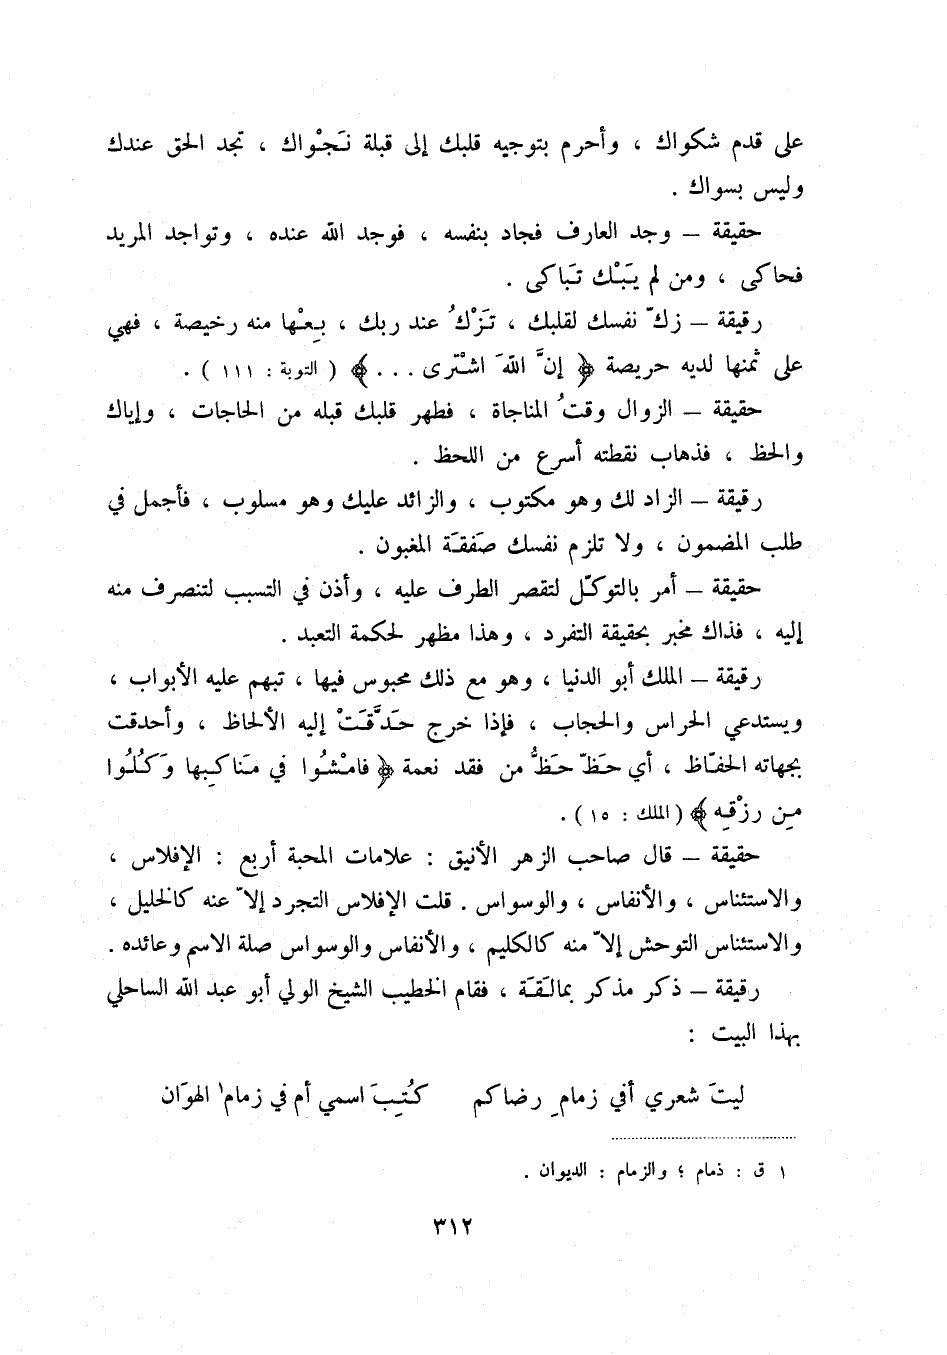 على قدم شكواك ، وأحرم بتوجيه قلبك إلى قبلة نَجْواك ، تجد الحق عندك
وليس بسواك .
حقيقة – وجد العارف فجاد بنفسه ، فوجد الله عنده ، وتواجد المريد
فحاكى ، ومن لم يَبْك تَباكى .
رقيقة – زكّ نفسك لقلبك ، تَزْكُ عند ربك ، بِعْها منه رخيصة ، فهي
على ثمنها لديه حريصة ﴿ إنَّ اللهَ اشْتَرى . . . ﴾ ( التوبة : ١١١ ) .
حقيقة – الزوال وقتُ المناجاة ، فطهر قلبك قبله من الحاجات ، وإياك
والحظ ، فذهاب نقطته أسرع من اللحظ .
رقيقة – الزاد لك وهو مكتوب ، والزائد عليك وهو مسلوب ، فأجمل في
طلب المضمون ، ولا تلزم نفسك صَفقَة المغبون .
حقيقة – أمر بالتوكّل لتقصر الطرف عليه ، وأذن في التسبب لتنصرف منه
إليه ، فذاك مخبر بحقيقة التفرد ، وهذا مظهر لحكمة التعبد .
رقيقة – الملك أبو الدنيا ، وهو مع ذلك محبوس فيها ، تبهم عليه الأبواب ،
ويستدعي الحراس والحجاب ، فإذا خرج حَدَّقَتْ إليه الألحاظ ، وأحدقت
بجهاته الحفّاظ ، أي حَظّ حَظُّ من فقد نعمة ﴿ فامْشُوا في مَناكِبِها وَكُلُوا
مِن رزْقِه ﴾ ( الملك : ١٥ ) .
حقيقة – قال صاحب الزهر الأنيق : علامات المحبة أربع : الإفلاس ،
والاستئناس ، والأنفاس ، والوسواس . قلت الإفلاس التجرد إلاّ عنه كالخليل ،
والاستئناس التوحش إلاّ منه كالكليم ، والأنفاس والوسواس صلة الاسم وعائده .
رقيقة – ذكر مذكر بمالَقَة ، فقام الخطيب الشيخ الولي أبو عبد الله الساحلي
بهذا البيت :
ليتَ شعري أفي زمامِ رضاكم كُتِبَ اسمي أم في زمام١ الهوَان
١ ق : ذمام ؛ والزمام : الديوان .
٣١٢